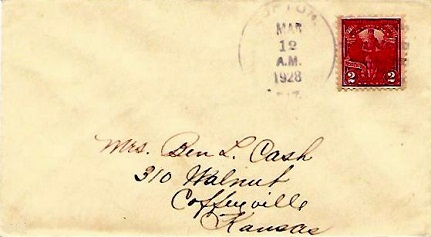 UPTON
MAR
12
A.M.
1928
2 2
Mrs. Ben L. Cash
310 Walnut
Coffeyville
Kansas